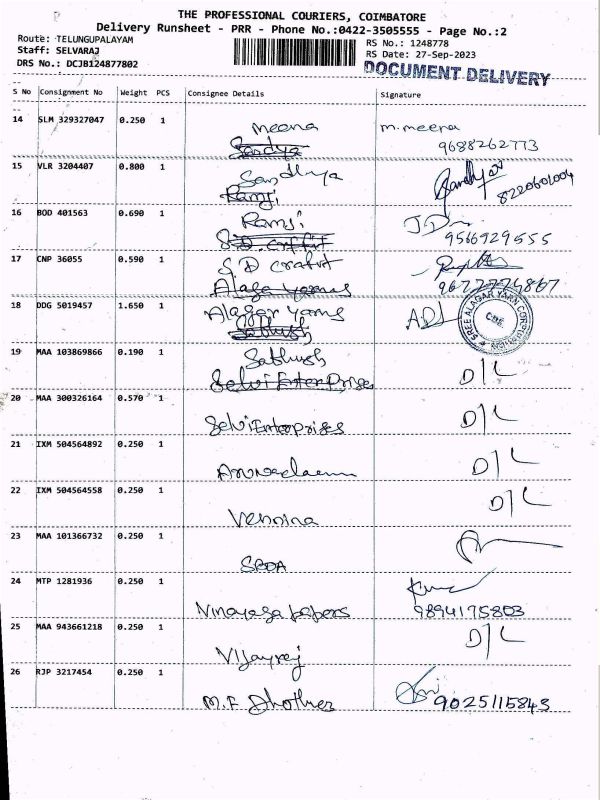 THE PROFESSIONAL COURIERS, COIMBATORE
Delivery Runsheet - PRR - Phone No.:0422-3505555 - Page No.:2
Route: TELUNGUPALAYAM
RS No.: 1248778
Staff: SELVARAJ
RS Date: 27-Sep-2023
DRS No.: DCJB124877802
DOCUMENT DELIVERY
S No Consignment No Weight PCS Consignee Details Signature
14 SLM 329327047 0.250 1 Meena m.meena
Sandya 9688262773
15 VLR 3204407 0.800 1 Sandhya 8220601004
Ramji
16 BOD 401563 0.690 1 Ramji
S.D craft 9566929555
17 CNP 36055 0.590 1 S.D crafrt
Alaga yarns
18 DDG 5019457 1.650 1 Alagar yarns SREE ALAGAR YARN CORPORATION CBE.
Sathish
19 MAA 103869866 0.190 1 Sathish D/L
Selvi Enterprises
20 MAA 300326164 0.570 1 D/L
Selvi Enterprises
21 IXM 504564892 0.250 1 D/L
22 IXM 504564558 0.250 1 D/L
23 MAA 101366732 0.250 1
24 MTP 1281936 0.250 1
Vinayaga papers 9894175803
25 MAA 943661218 0.250 1 D/L
Vijayraj
26 RJP 3217454 0.250 1
M.F 9025115843